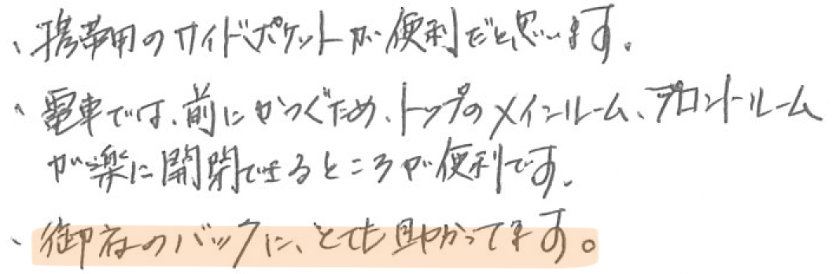 、携帯用のサイドポケットが便利だと思います。
、電車では、前にかつぐため、トップのメインルーム、フロントルーム
が楽に開閉できるところが便利です。
、御社のバックに、とても助かってます。